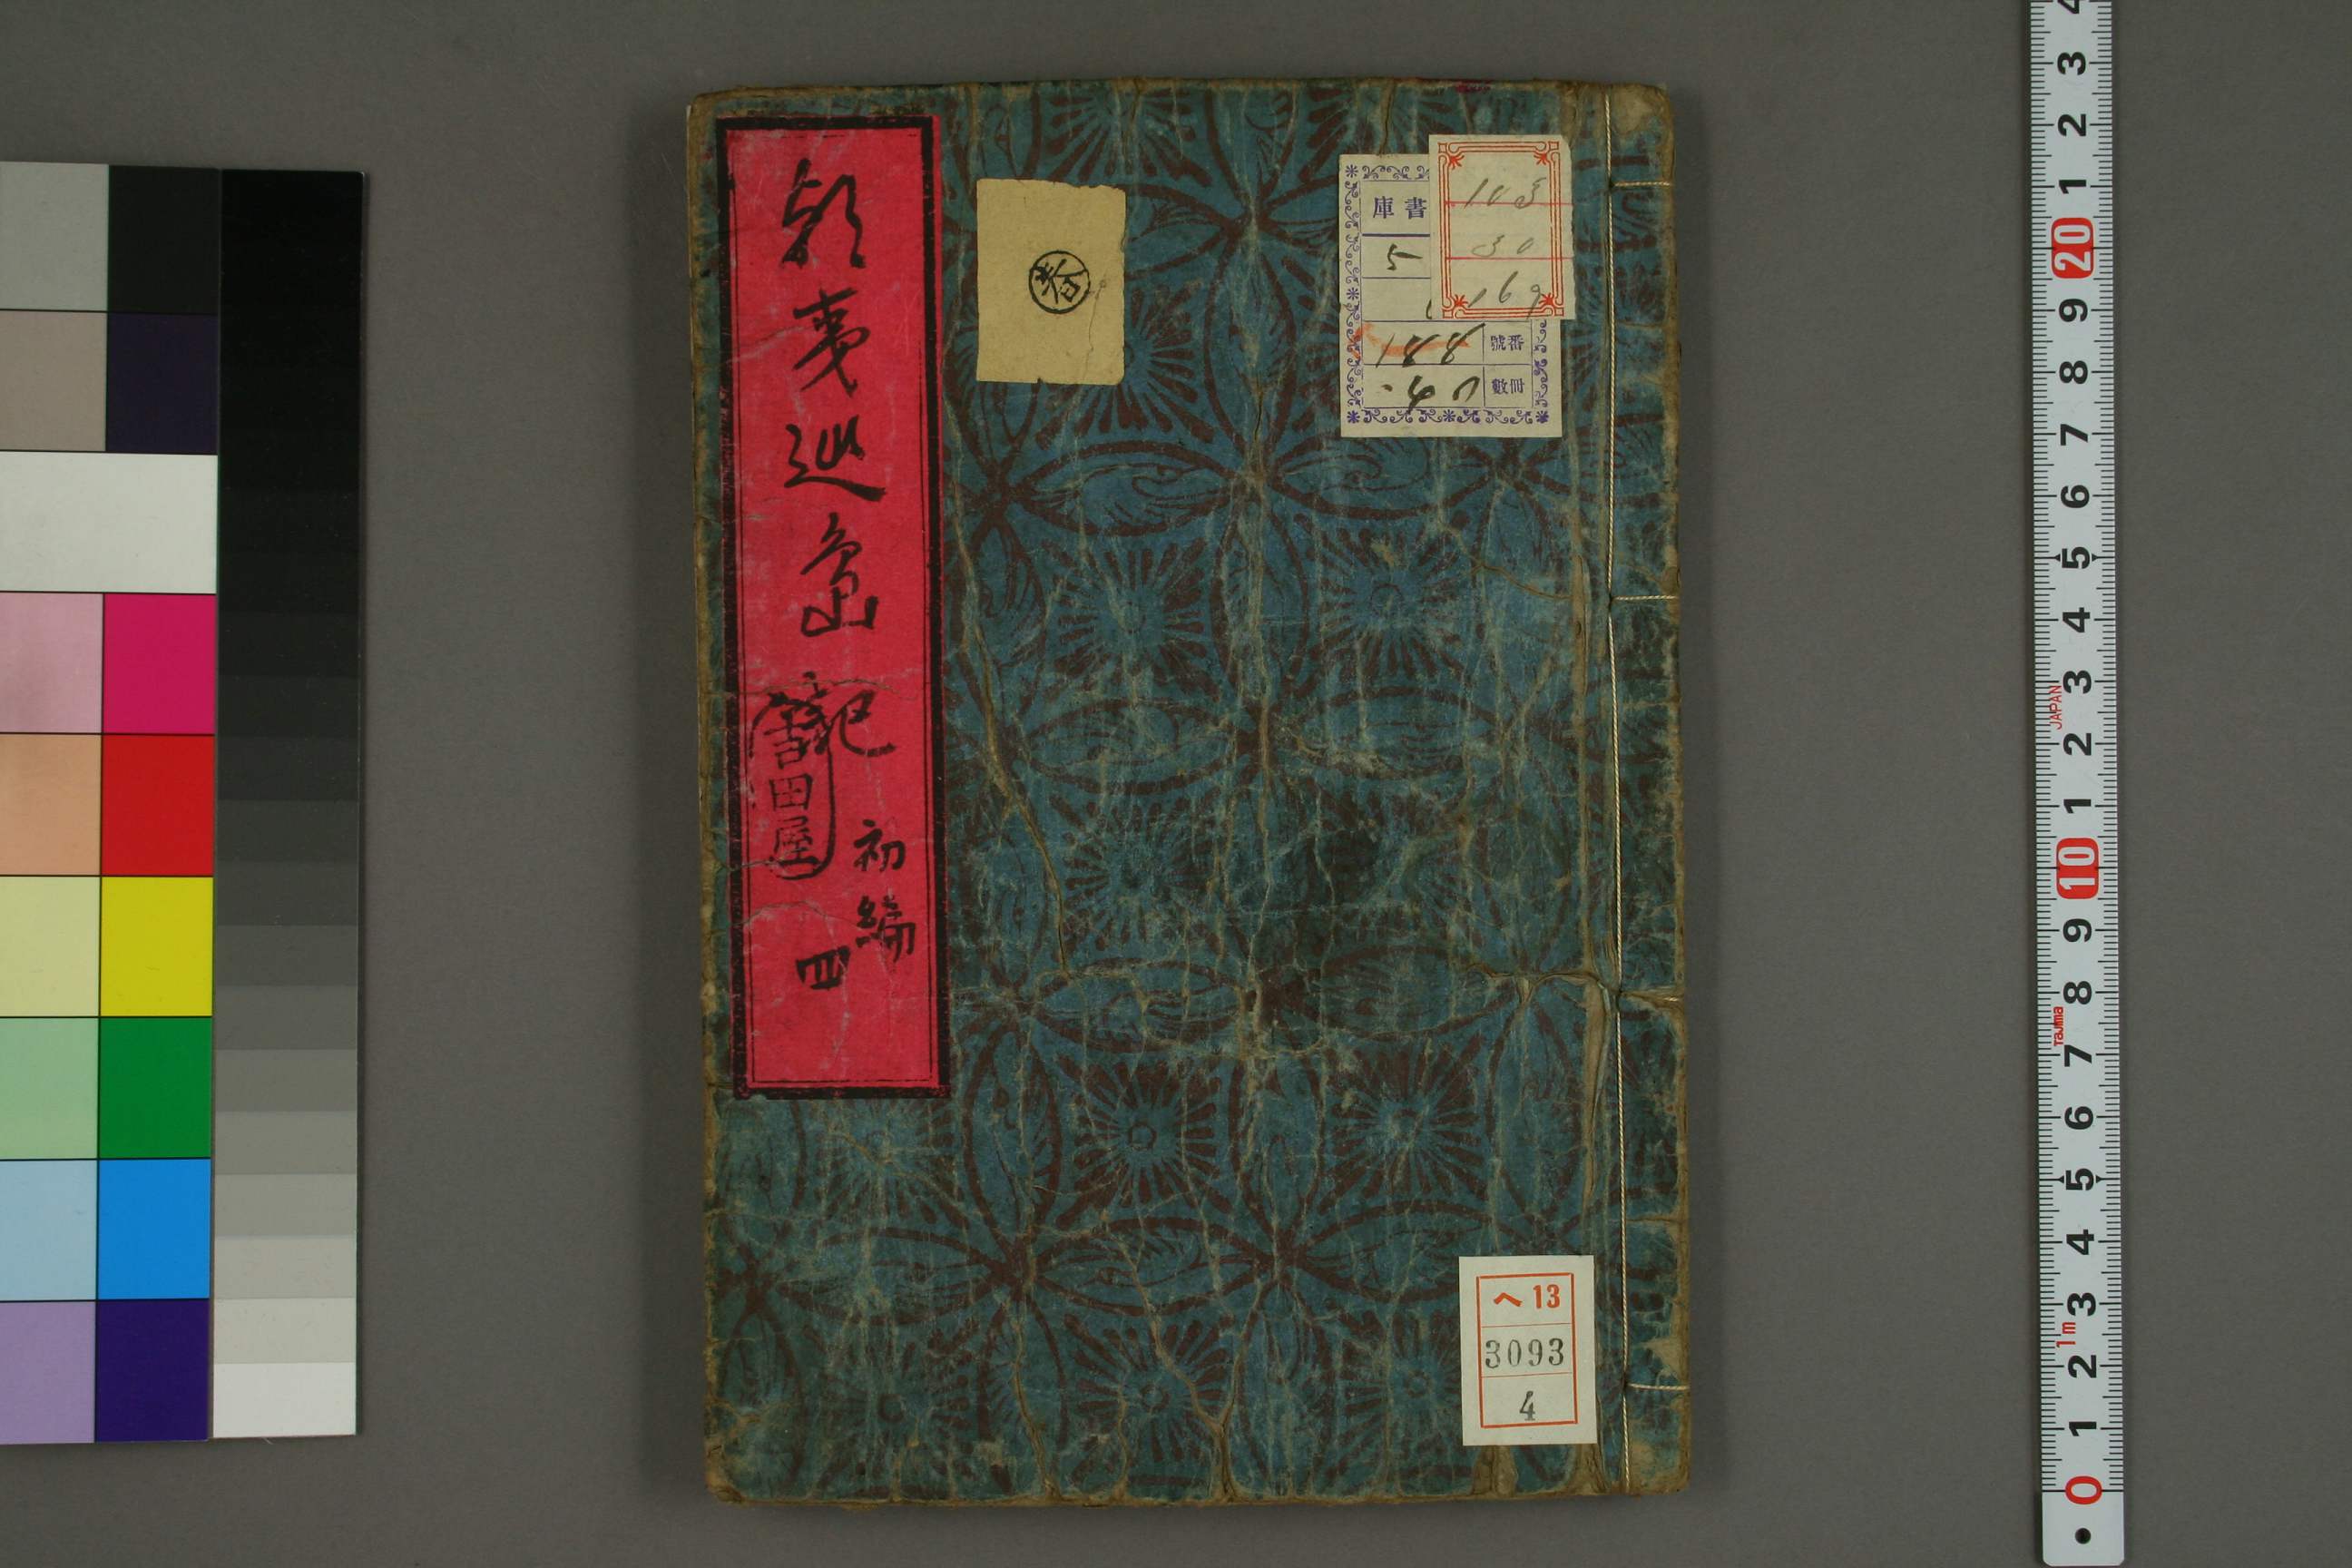 朝夷巡島記
初編
四
田屋
書庫
5
169
103
30
188
番號
40
冊數
ヘ13
3093
4
4
3
2
1
20
9
8
7
6
5
4
3
2
1
10
9
8
7
6
5
4
3
2
1
0
JAPAN
Tajima
1m